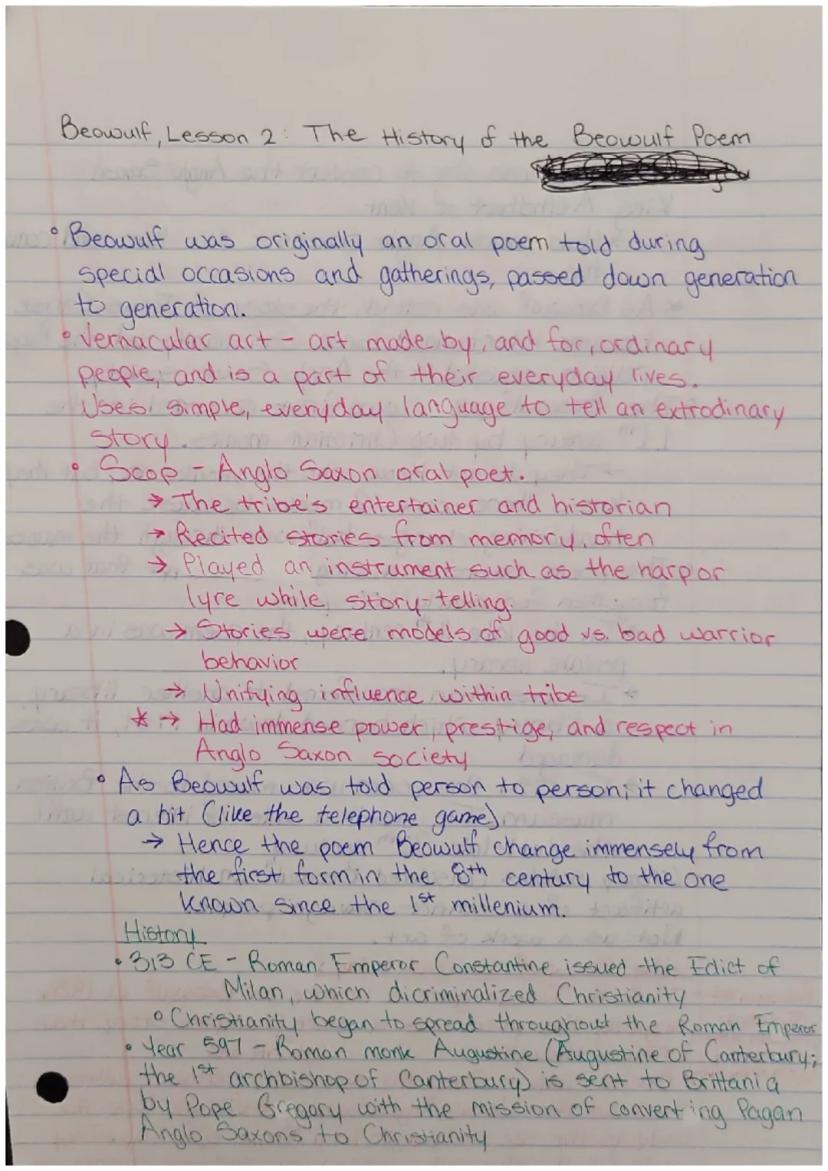 Beowulf, Lesson 2: The History of the Beowulf Poem
° Beowulf was originally an oral poem told during
special occasions and gatherings, passed down generation
to generation.
° Vernacular art - art made by, and for, ordinary
people, and is a part of their everyday lives.
Uses simple, everyday language to tell an extrodinary
story.
° Scop - Anglo Saxon oral poet.
→ The tribe's entertainer and historian
→ Recited stories from memory, often
→ Played an instrument such as the harp or
lyre while story-telling.
→ Stories were models of good vs. bad warrior
behavior
→ Unifying influence within tribe
* → Had immense power, prestige, and respect in
Anglo Saxon society
° As Beowulf was told person to person, it changed
a bit (like the telephone game)
→ Hence the poem Beowulf change immensely from
the first form in the 8th century to the one
known since the 1st millenium.
History
• 313 CE - Roman Emperor Constantine issued the Edict of
Milan, which dicriminalized Christianity
° Christianity began to spread throughout the Roman Emperor
• Year 597 - Roman monk Augustine (Augustine of Canterbury;
the 1st archbishop of Canterbury) is sent to Brittania
by Pope Gregory with the mission of converting Pagan
Anglo Saxons to Christianity